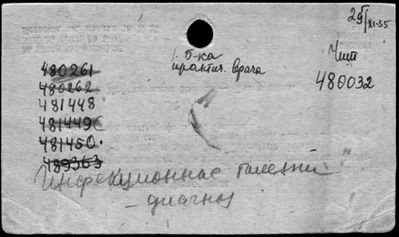 29/XI-55
1. б-ка
практич. врача
Чит
480032
480261
480262
481448
481449с
481450.
489363
Инфекционные болезни
– диагноз